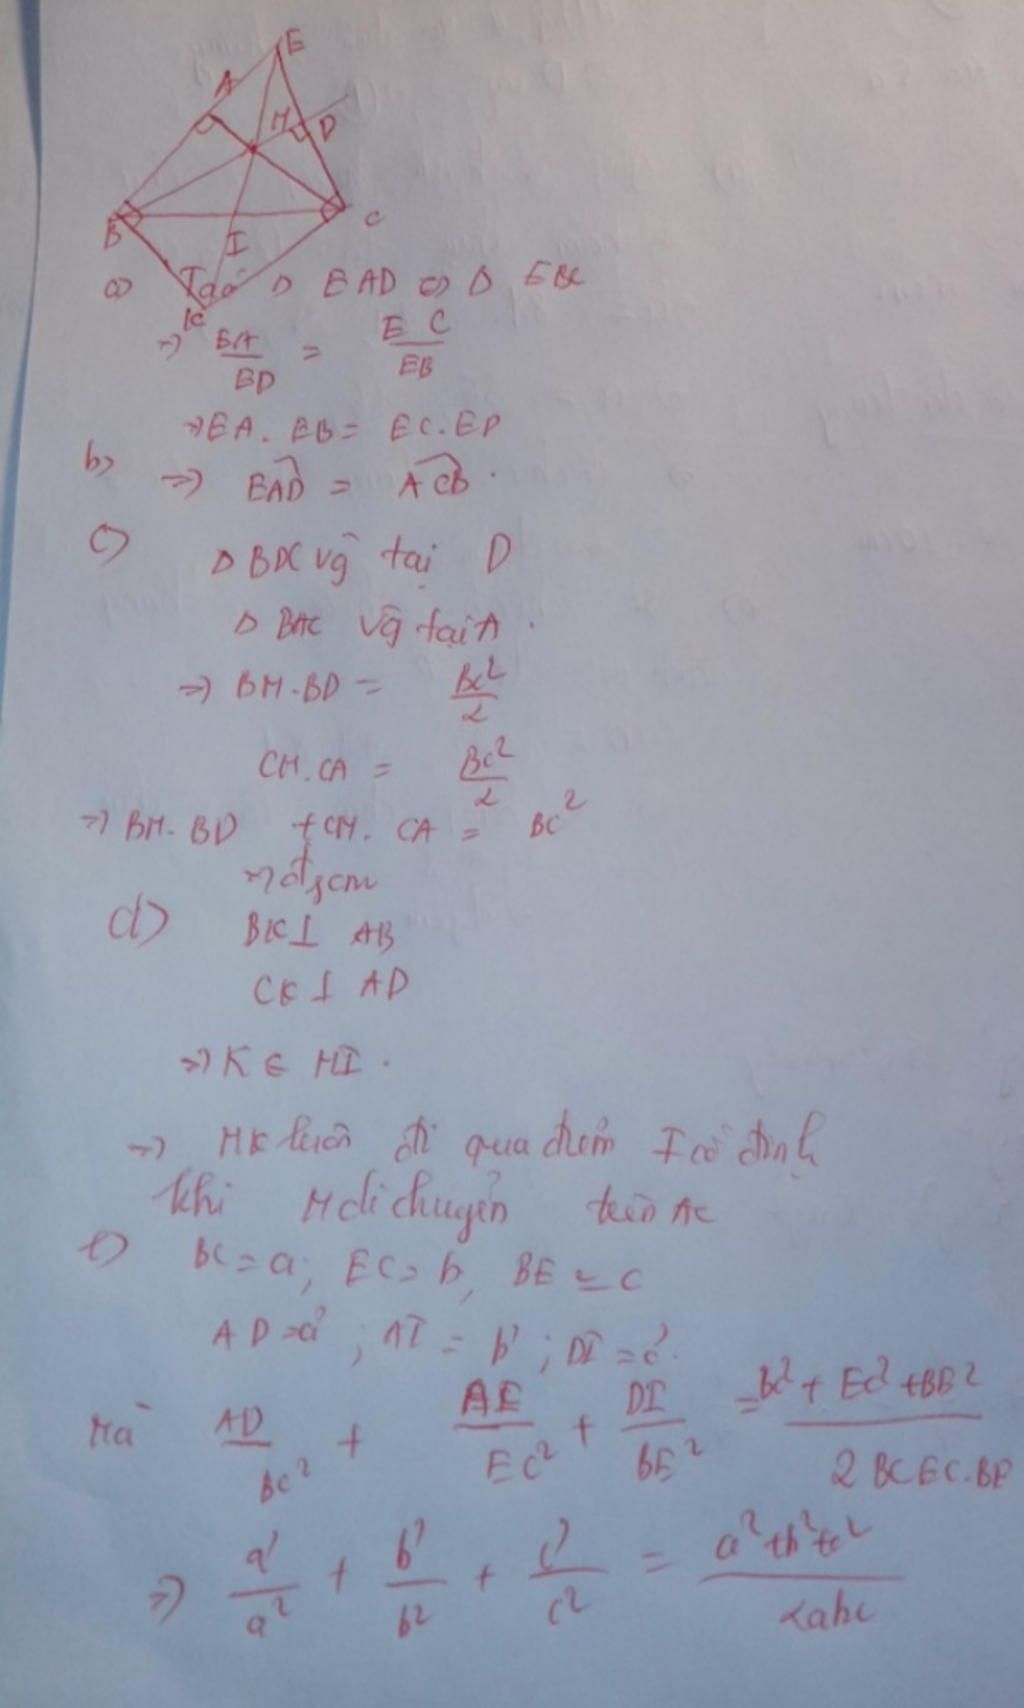 E
A
H
D
B
I
C
a) Ta có Δ EAD ∽ Δ EBC
K
=> EA/ED = EC/EB
=> EA. EB = EC. ED
b) => EAD = ACB.
c) Δ BDC vg tại D
Δ BAC vg tại A.
=> BH.BD = BC²/2
CH.CA = BC²/2
=> BH. BD + CH. CA = BC²
=> đpcm
d) BK ⊥ AB
CK ⊥ AD
=> K ∈ HI.
=> HK luôn đi qua điểm I cố định
khi H di chuyển trên AC
e) BC = a; EC = b, BE = c
AD = a'; AI = b'; DI = c'.
Mà AD/BC² + AE/EC² + DI/BE² = BC² + EC² + BE² / 2 BC EC. BE
=> a'/a² + b'/b² + c'/c² = a² + b² + c² / 2abc